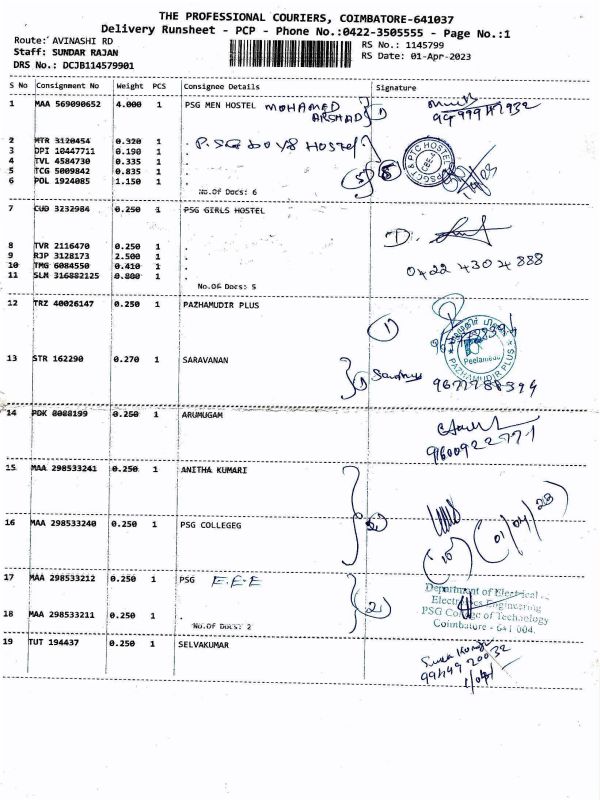 THE PROFESSIONAL COURIERS, COIMBATORE-641037
Delivery Runsheet - PCP - Phone No.:0422-3505555 - Page No.:1
Route: AVINASHI RD
Staff: SUNDAR RAJAN
DRS No.: DCJB114579901
RS No.: 1145799
RS Date: 01-Apr-2023
S No Consignment No Weight PCS Consignee Details Signature
1 MAA 569090652 4.000 1 PSG MEN HOSTEL MOHAMED
ARSHAD 1
2 MTR 3120454 0.320 1 . P.SG BOYS HOSTEL
3 DPI 10447711 0.190 1 .
4 TVL 4584730 0.335 1 .
5 TCG 5009842 0.835 1 .
6 POL 1924085 1.150 1 . 5
No.Of Docs: 6
PSGCT & PTC HOSTEL
CBE-4
7 CUD 3232984 0.250 1 PSG GIRLS HOSTEL
8 TVR 2116470 0.250 1 .
9 RJP 3128173 2.500 1 .
10 TMG 6084550 0.410 1 .
11 SLM 316882125 0.800 1 .
No.Of Docs: 5
0422 4304888
12 TRZ 40026147 0.250 1 PAZHAMUDIR PLUS
1
Peelamedu
PAZHAMUDIR PLUS
13 STR 162290 0.270 1 SARAVANAN
1
9677788394
14 PDK 8088199 0.250 1 ARUMUGAM
9600922771
15 MAA 298533241 0.250 1 ANITHA KUMARI
16 MAA 298533240 0.250 1 PSG COLLEGEG 2
(10) (01/04/23)
17 MAA 298533212 0.250 1 PSG E.E.E
18 MAA 298533211 0.250 1 .
No.Of Docs: 2
2
Department of Electrical &
Electronics Engineering
PSG College of Technology
Coimbatore - 641 004.
19 TUT 194437 0.250 1 SELVAKUMAR